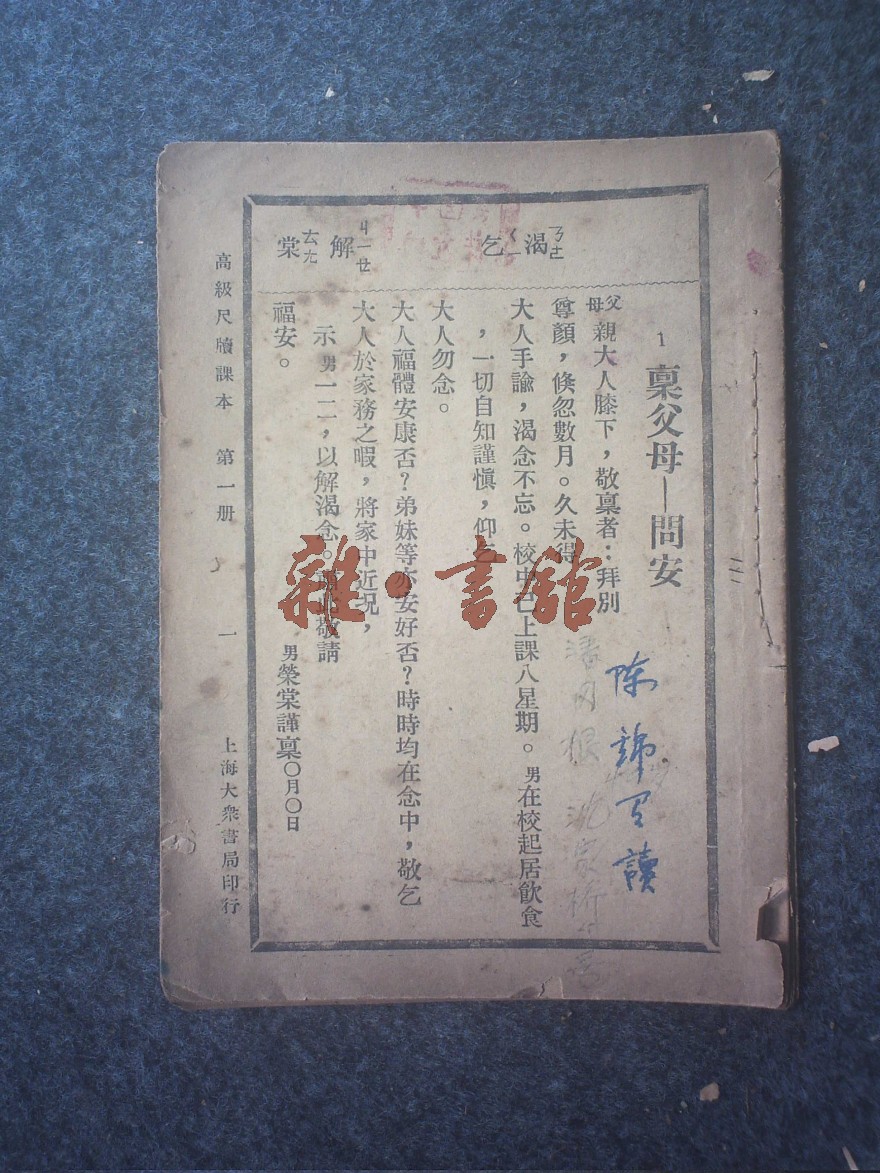 渴 ㄎㄜ
乞 ㄑㄧ
解 ㄐㄧㄝ
棠 ㄊㄤ
1 稟父母—問安
父母親大人膝下，敬稟者：拜別
尊顏，倏忽數月。久未得
大人手諭，渴念不忘。校中已上課八星期。男在校起居飲食
，一切自知謹慎，仰乞
大人勿念。
大人福體安康否？弟妹等亦安好否？時時均在念中，敬乞
大人於家務之暇，將家中近況，
示男一二，以解渴念。敬請
福安。
男榮棠謹稟〇月〇日
高級尺牘課本 第一册 一 上海大衆書局印行
雜·書館
讀